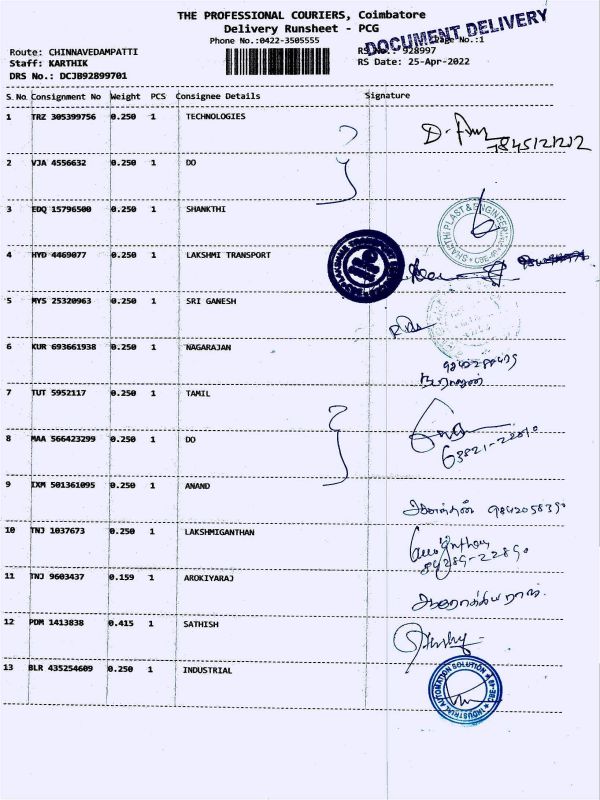 THE PROFESSIONAL COURIERS, Coimbatore
Delivery Runsheet - PCG
Phone No.:0422-3505555
Page No.:1
DOCUMENT DELIVERY
Route: CHINNAVEDAMPATTI
Staff: KARTHIK
DRS No.: DCJB92899701
928997
RS Date: 25-Apr-2022
S.No Consignment No Weight PCS Consignee Details Signature
1 TRZ 305399756 0.250 1 TECHNOLOGIES
7845121212
2 VJA 4556632 0.250 1 DO
3 EDQ 15796500 0.250 1 SHANKTHI
SHAKTHI PLAST & ENGINEERING
4 HYD 4469077 0.250 1 LAKSHMI TRANSPORT
5 MYS 25320963 0.250 1 SRI GANESH
6 KUR 693661938 0.250 1 NAGARAJAN
7 TUT 5952117 0.250 1 TAMIL
8 MAA 566423299 0.250 1 DO
9 IXM 501361095 0.250 1 ANAND
ஆனந்தன்
10 TNJ 1037673 0.250 1 LAKSHMIGANTHAN
11 TNJ 9603437 0.159 1 AROKIYARAJ
ஆரோக்கியராஜ்
12 PDM 1413838 0.415 1 SATHISH
13 BLR 435254609 0.250 1 INDUSTRIAL
INDUSTRIAL AUTOMATION SOLUTION